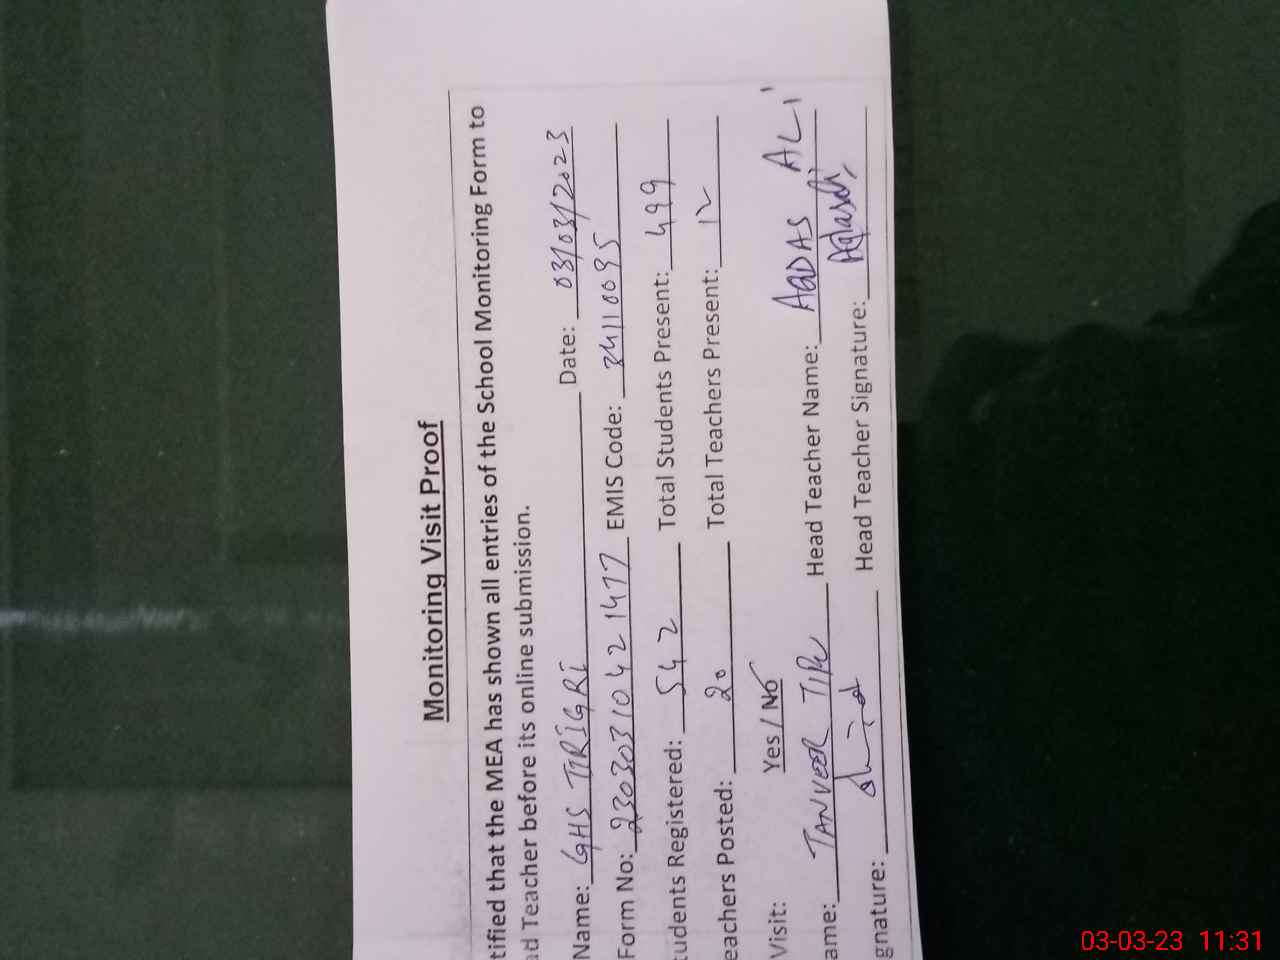 Monitoring Visit Proof
tified that the MEA has shown all entries of the School Monitoring Form to
ad Teacher before its online submission.
Name: GHS TIRIGRI Date: 03/03/2023
Form No: 23030310421477 EMIS Code: 34110095
tudents Registered: 542 Total Students Present: 499
eachers Posted: 20 Total Teachers Present: 12
Visit: Yes / No
ame: TANVEER Head Teacher Name: AQDAS ALI
gnature: Head Teacher Signature:
03-03-23 11:31